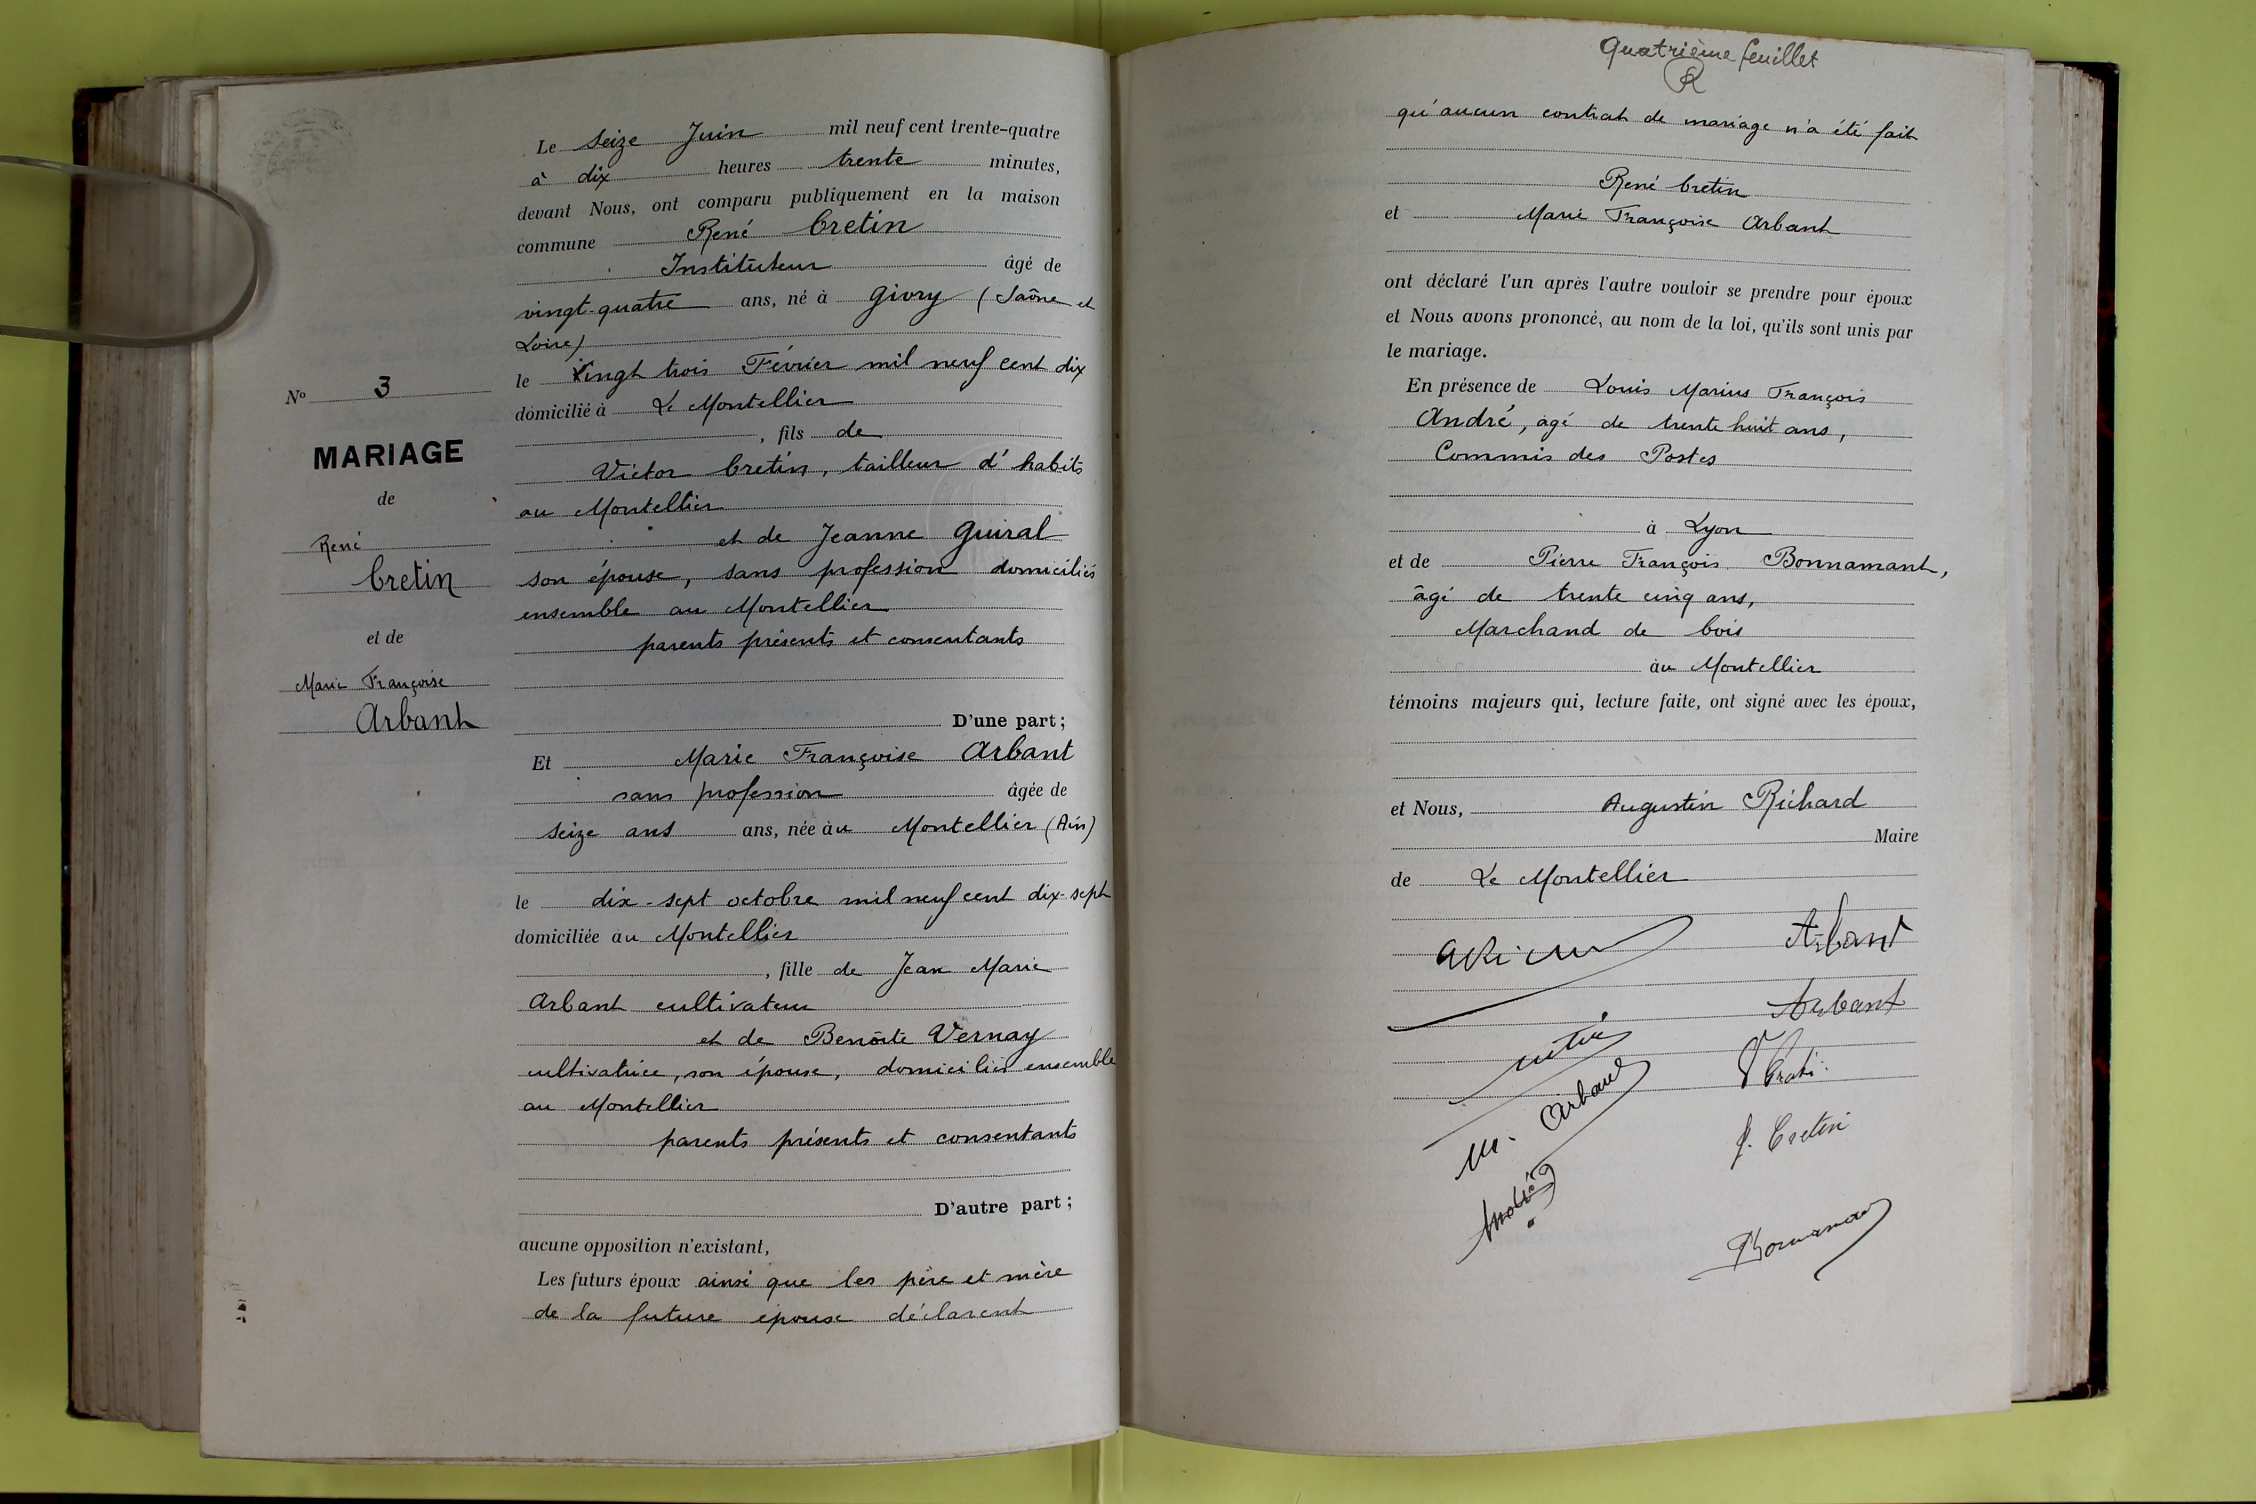 No 3
MARIAGE
de
René
Cretin
et de
Marie Françoise
Arbant
Le seize Juin mil neuf cent trente-quatre
à dix heures trente minutes,
devant Nous, ont comparu publiquement en la maison
commune René Cretin
Instituteur âgé de
vingt-quatre ans, né à Givry (Saône et
Loire)
le Vingt trois Février mil neuf cent dix
domicilié à Le Montellier
, fils de
Victor Cretin, tailleur d'habits
au Montellier
et de Jeanne Guiral
son épouse, sans profession domiciliés
ensemble au Montellier
parents présents et consentants
D'une part;
Et Marie Françoise Arbant
sans profession âgée de
seize ans ans, née au Montellier (Ain)
le dix-sept octobre mil neuf cent dix-sept
domiciliée au Montellier
, fille de Jean Marie
Arbant cultivateur
et de Benoîte Vernay
cultivatrice, son épouse, domiciliés ensemble
au Montellier
parents présents et consentants
D'autre part;
aucune opposition n'existant,
Les futurs époux ainsi que les père et mère
de la future épouse déclarent
Quatrième feuillet
qu'aucun contrat de mariage n'a été fait
René Cretin
et Marie Françoise Arbant
ont déclaré l'un après l'autre vouloir se prendre pour époux
et Nous avons prononcé, au nom de la loi, qu'ils sont unis par
le mariage.
En présence de Louis Marius François
André, âgé de trente huit ans,
Commis des Postes
à Lyon
et de Pierre François Bonnamant,
âgé de trente cinq ans,
Marchand de bois
au Montellier
témoins majeurs qui, lecture faite, ont signé avec les époux,
et Nous, Augustin Richard
Maire
de Le Montellier
Arbant
Arbant
M. Arbant
Cretin